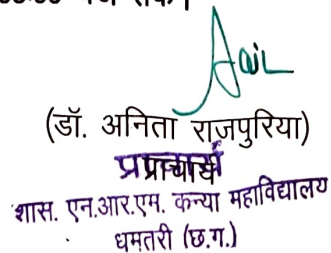 (डॉ. अनिता राजपुरिया)
प्राचार्य
शास. एन.आर.एम. कन्या महाविद्यालय
धमतरी (छ.ग.)